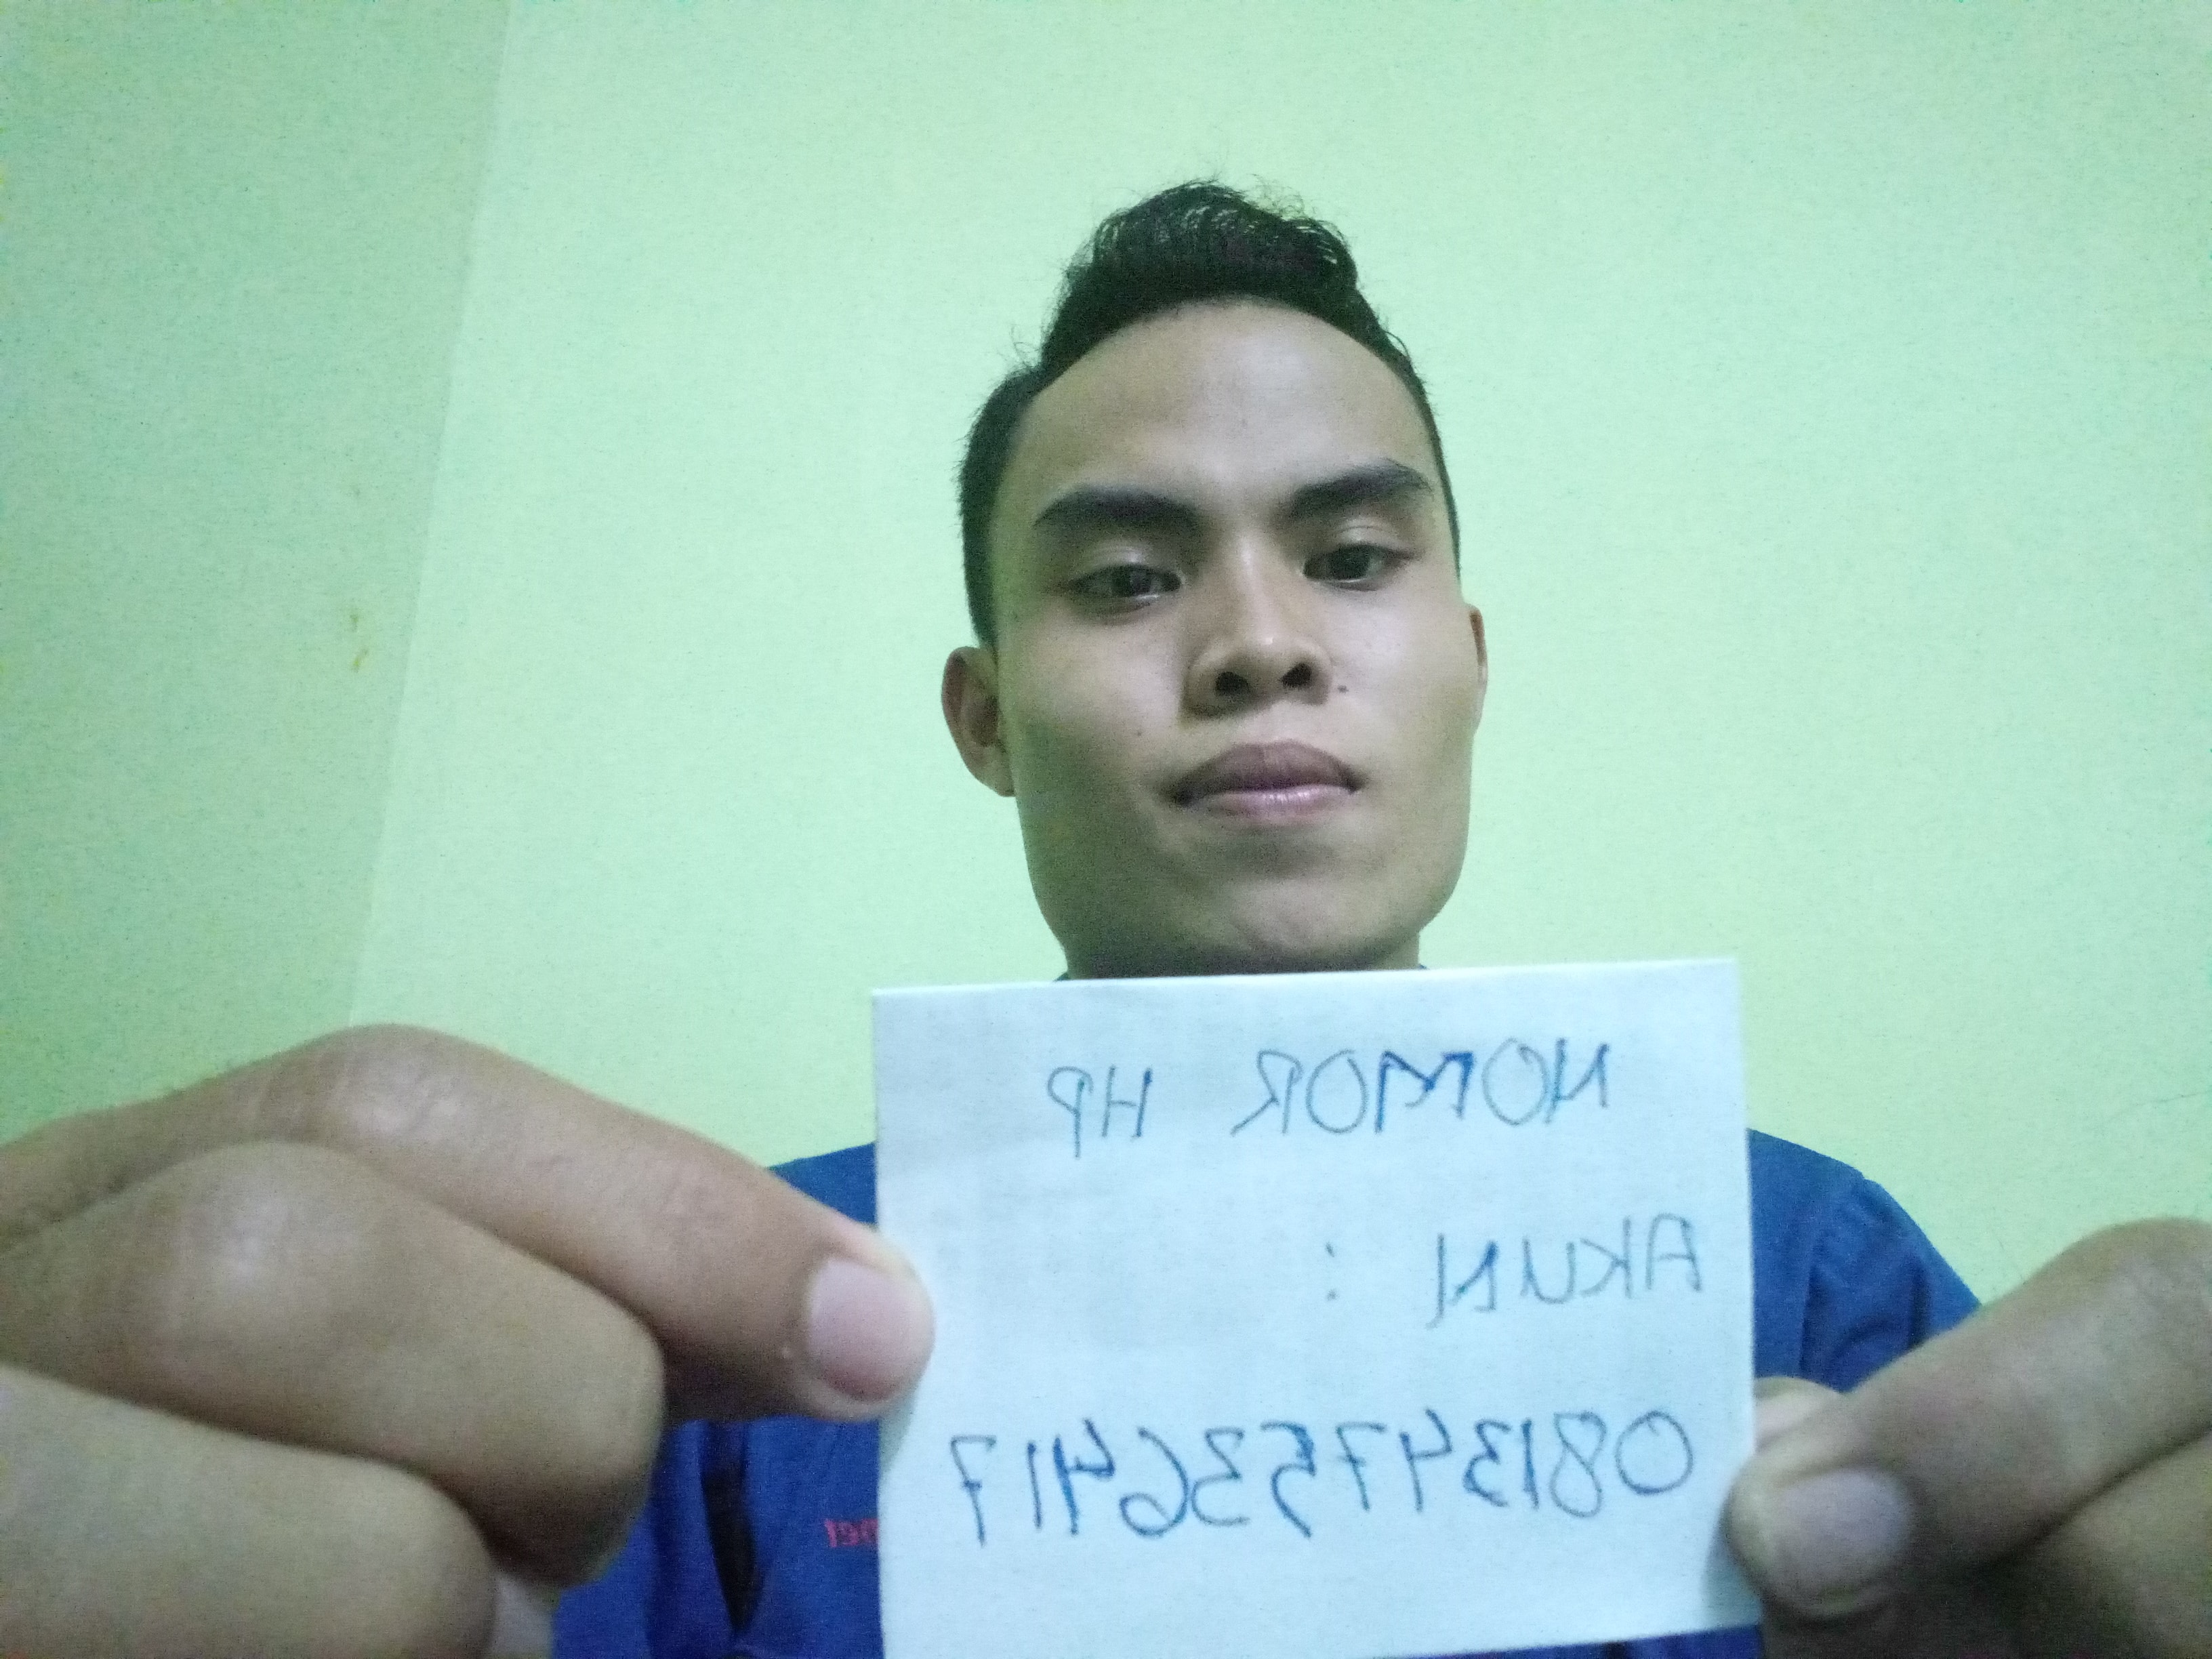 NOMOR HP
AKUN :
081347536417